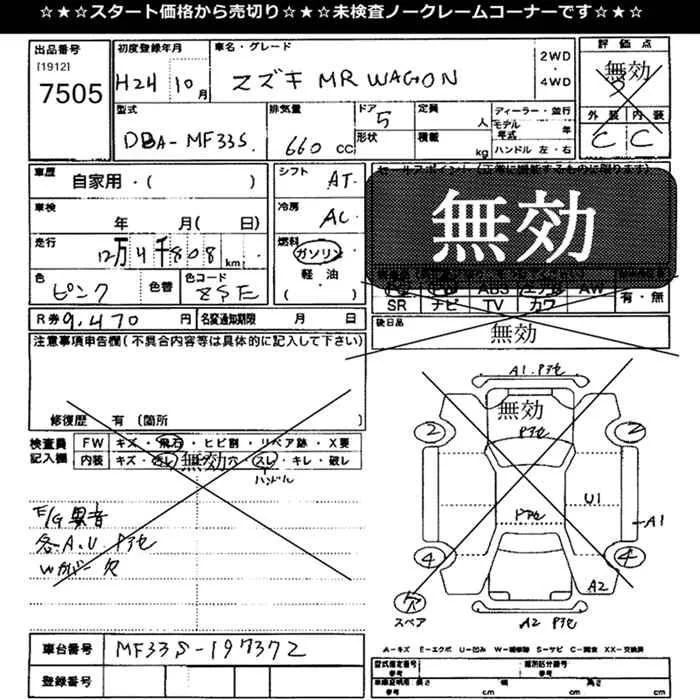 ☆★☆★スタート価格から売切り☆★☆★未検査ノークレームコーナーです☆★☆
出品番号
[1912]
7505
初度登録年月
H24 10月
車名・グレード
スズキ MR WAGON
2WD
・
4WD
評価点
無効
外装 内装
C C
型式
DBA-MF33S
排気量
660 CC
ドア
5
形状
定員
人
積載
kg
ディーラー・並行
モデル年式
年
ハンドル 左・右
車歴
自家用・( )
シフト
AT
車検
年 月( 日)
冷房
AC
走行
12万4千808km
燃料
ガソリン
軽・油
( )
色
ピンク
色替
色コード
ZSE
無効
ABS
AW
SR ナビ TV カワ
有・無
R券 9,470円
名変通知期限 月 日
後日品
無効
注意事項申告欄(不具合内容等は具体的に記入して下さい)
修復歴 有 (箇所 )
検査員
記入欄
FW キズ・飛石・ヒビ割・リペア跡・X要
内装 キズ・
無効
穴・スレ・キレ・破レ
ハンドル
E/G異音
各A.U.Pアセ
Wカバー欠
A1.Pアセ
無効
Pアセ
2
2
Pアセ
U1
A1
4
4
A2
穴
スペア
A2 Pアセ
車台番号
MF33S-197372
登録番号
A-キズ E-エクボ U-凹み W-補修跡 S-サビ C-腐食 XX-交換済
型式指定番号
参考
類別区分番号
参考
車庫証明用・長さ
参考
cm
幅
cm
高さ
cm